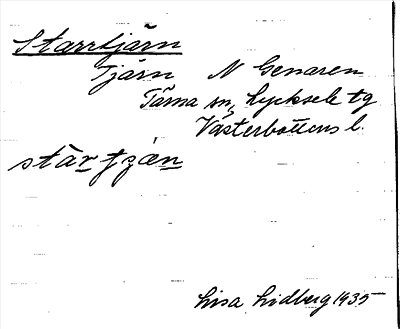 Starrtjärn
Tjärn N Genaren
Tärna sn, Lycksele tg
Västerbottens l.
Lisa Lidberg 1935